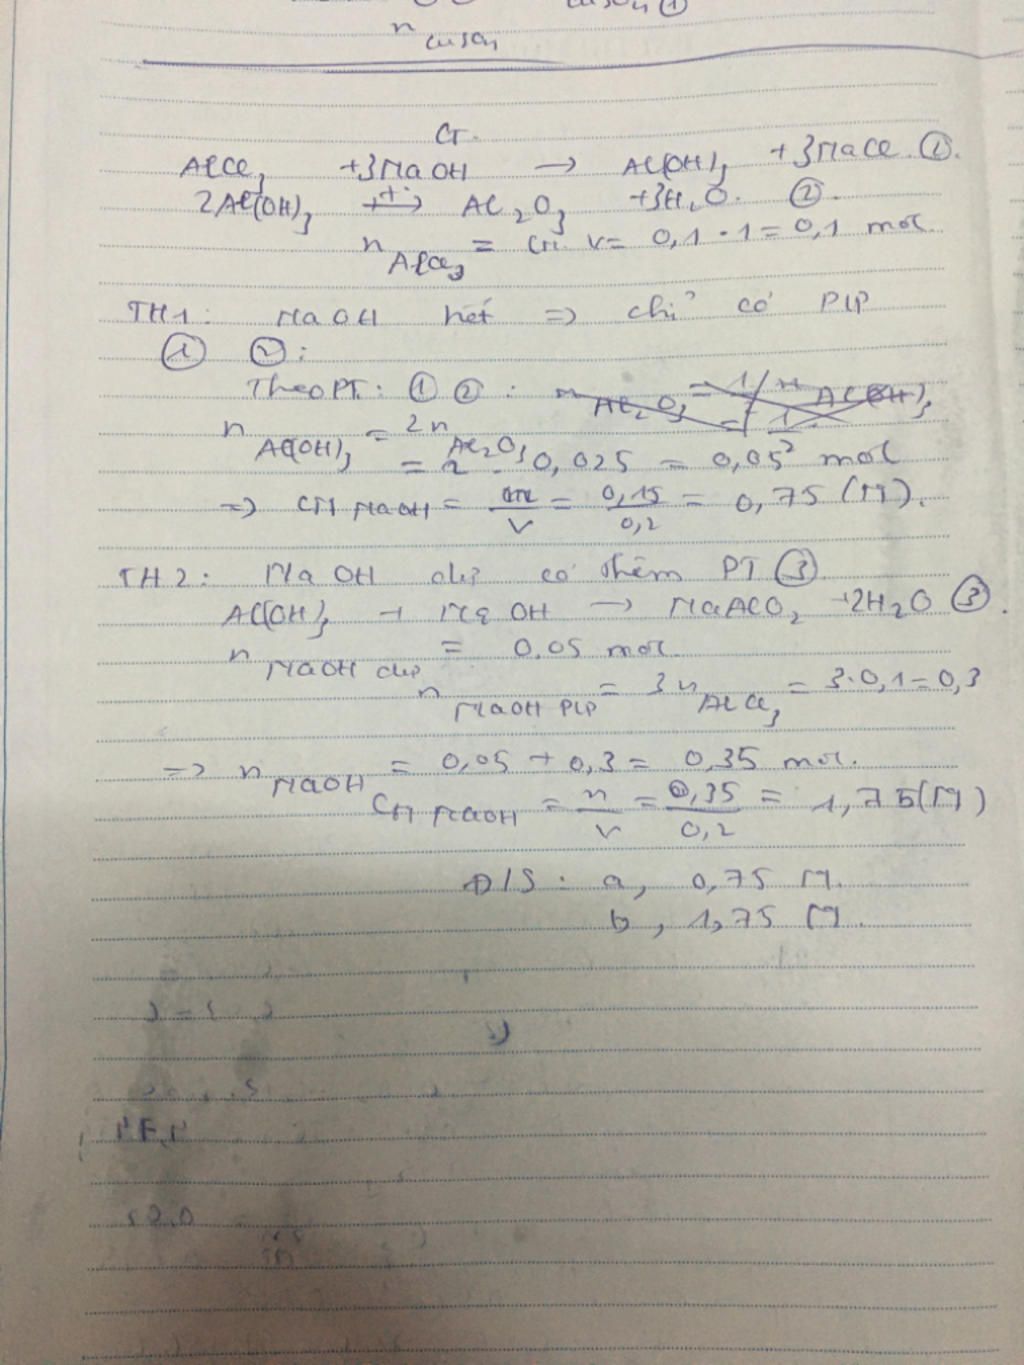 CuSO₄ ①
n CuSO₄
Gr.
AlCl₃ + 3NaOH → Al(OH)₃ + 3NaCl ①.
2Al(OH)₃ →(t°) Al₂O₃ + 3H₂O. ②.
n AlCl₃ = CM. V = 0,1 . 1 = 0,1 mol.
TH1: NaOH hết => chỉ có PƯ
① ②:
Theo PT: ① ② :
n Al(OH)₃ = 2n Al₂O₃
= 2 . 0,025 = 0,05 mol
=> CM NaOH = n/V = 0,15/0,2 = 0,75 (M).
TH2: NaOH dư có thêm PT ③
Al(OH)₃ + NaOH → NaAlO₂ + 2H₂O ③.
n NaOH dư = 0,05 mol.
n NaOH PƯ = 3n AlCl₃ = 3.0,1 = 0,3
=> n NaOH = 0,05 + 0,3 = 0,35 mol.
CM NaOH = n/V = 0,35/0,2 = 1,75 (M)
Đ/S: a, 0,75 M.
b, 1,75 M.